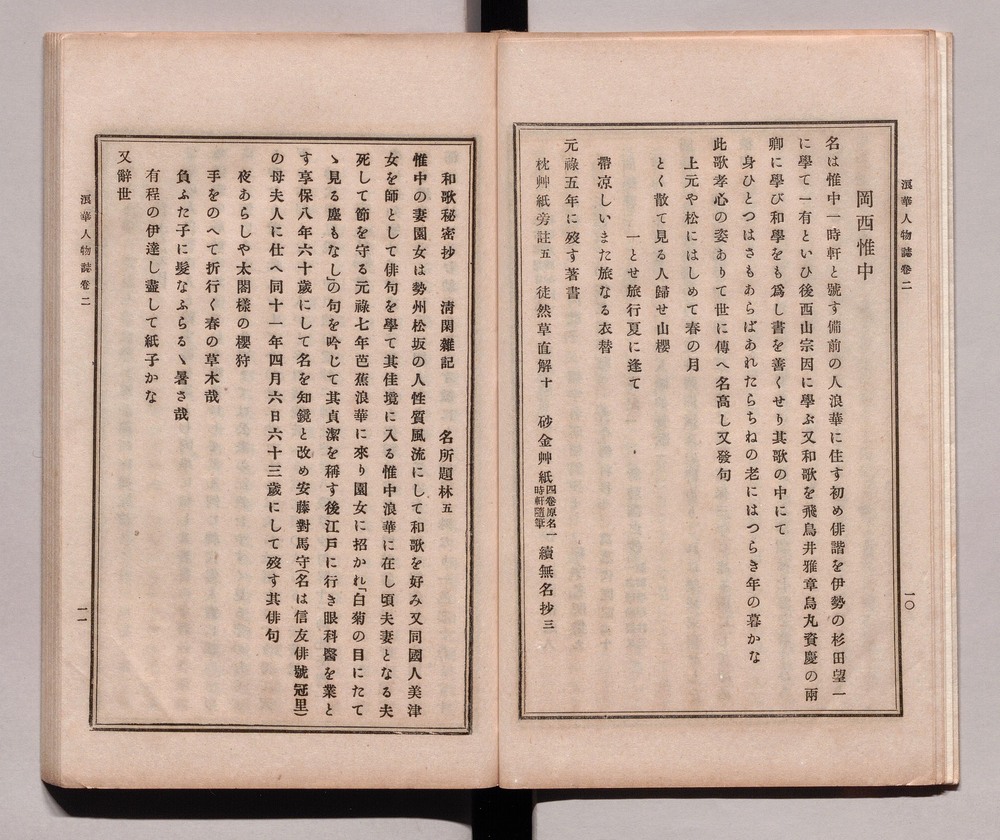 浪華人物誌卷二
一〇
岡西惟中
名は惟中一時軒と號す備前の人浪華に住す初め俳諧を伊勢の杉田望一
に學て一有といひ後西山宗因に學ぶ又和歌を飛鳥井雅章烏丸資慶の兩
卿に學び和學をも爲し書を善くせり其歌の中にて
身ひとつはさもあらばあれたらちねの老にはつらき年の暮かな
此歌孝心の姿ありて世に傳へ名高し又發句
上元や松にはしめて春の月
とく散て見る人歸せ山櫻
一とせ旅行夏に逢て
帶凉しいまた旅なる衣替
元祿五年に歿す著書
枕艸紙旁註五 徒然草直解十 砂金艸紙四卷原名一時軒隨筆 續無名抄三
和歌秘密抄 淸閑雜記 名所題林五
惟中の妻園女は勢州松坂の人性質風流にして和歌を好み又同國人美津
女を師として俳句を學て其佳境に入る惟中浪華に在し頃夫妻となる夫
死して節を守る元祿七年芭蕉浪華に來り園女に招かれ「白菊の目にたて
ゝ見る塵もなし」の句を吟じて其貞潔を稱す後江戸に行き眼科醫を業と
す享保八年六十歲にして名を知鏡と改め安藤對馬守(名は信友俳號冠里)
の母夫人に仕へ同十一年四月六日六十三歲にして歿す其俳句
夜あらしや太閤樣の櫻狩
手をのへて折行く春の草木哉
負ふた子に髮なふらるゝ暑さ哉
有程の伊達し盡して紙子かな
又辭世
浪華人物誌卷二
一一